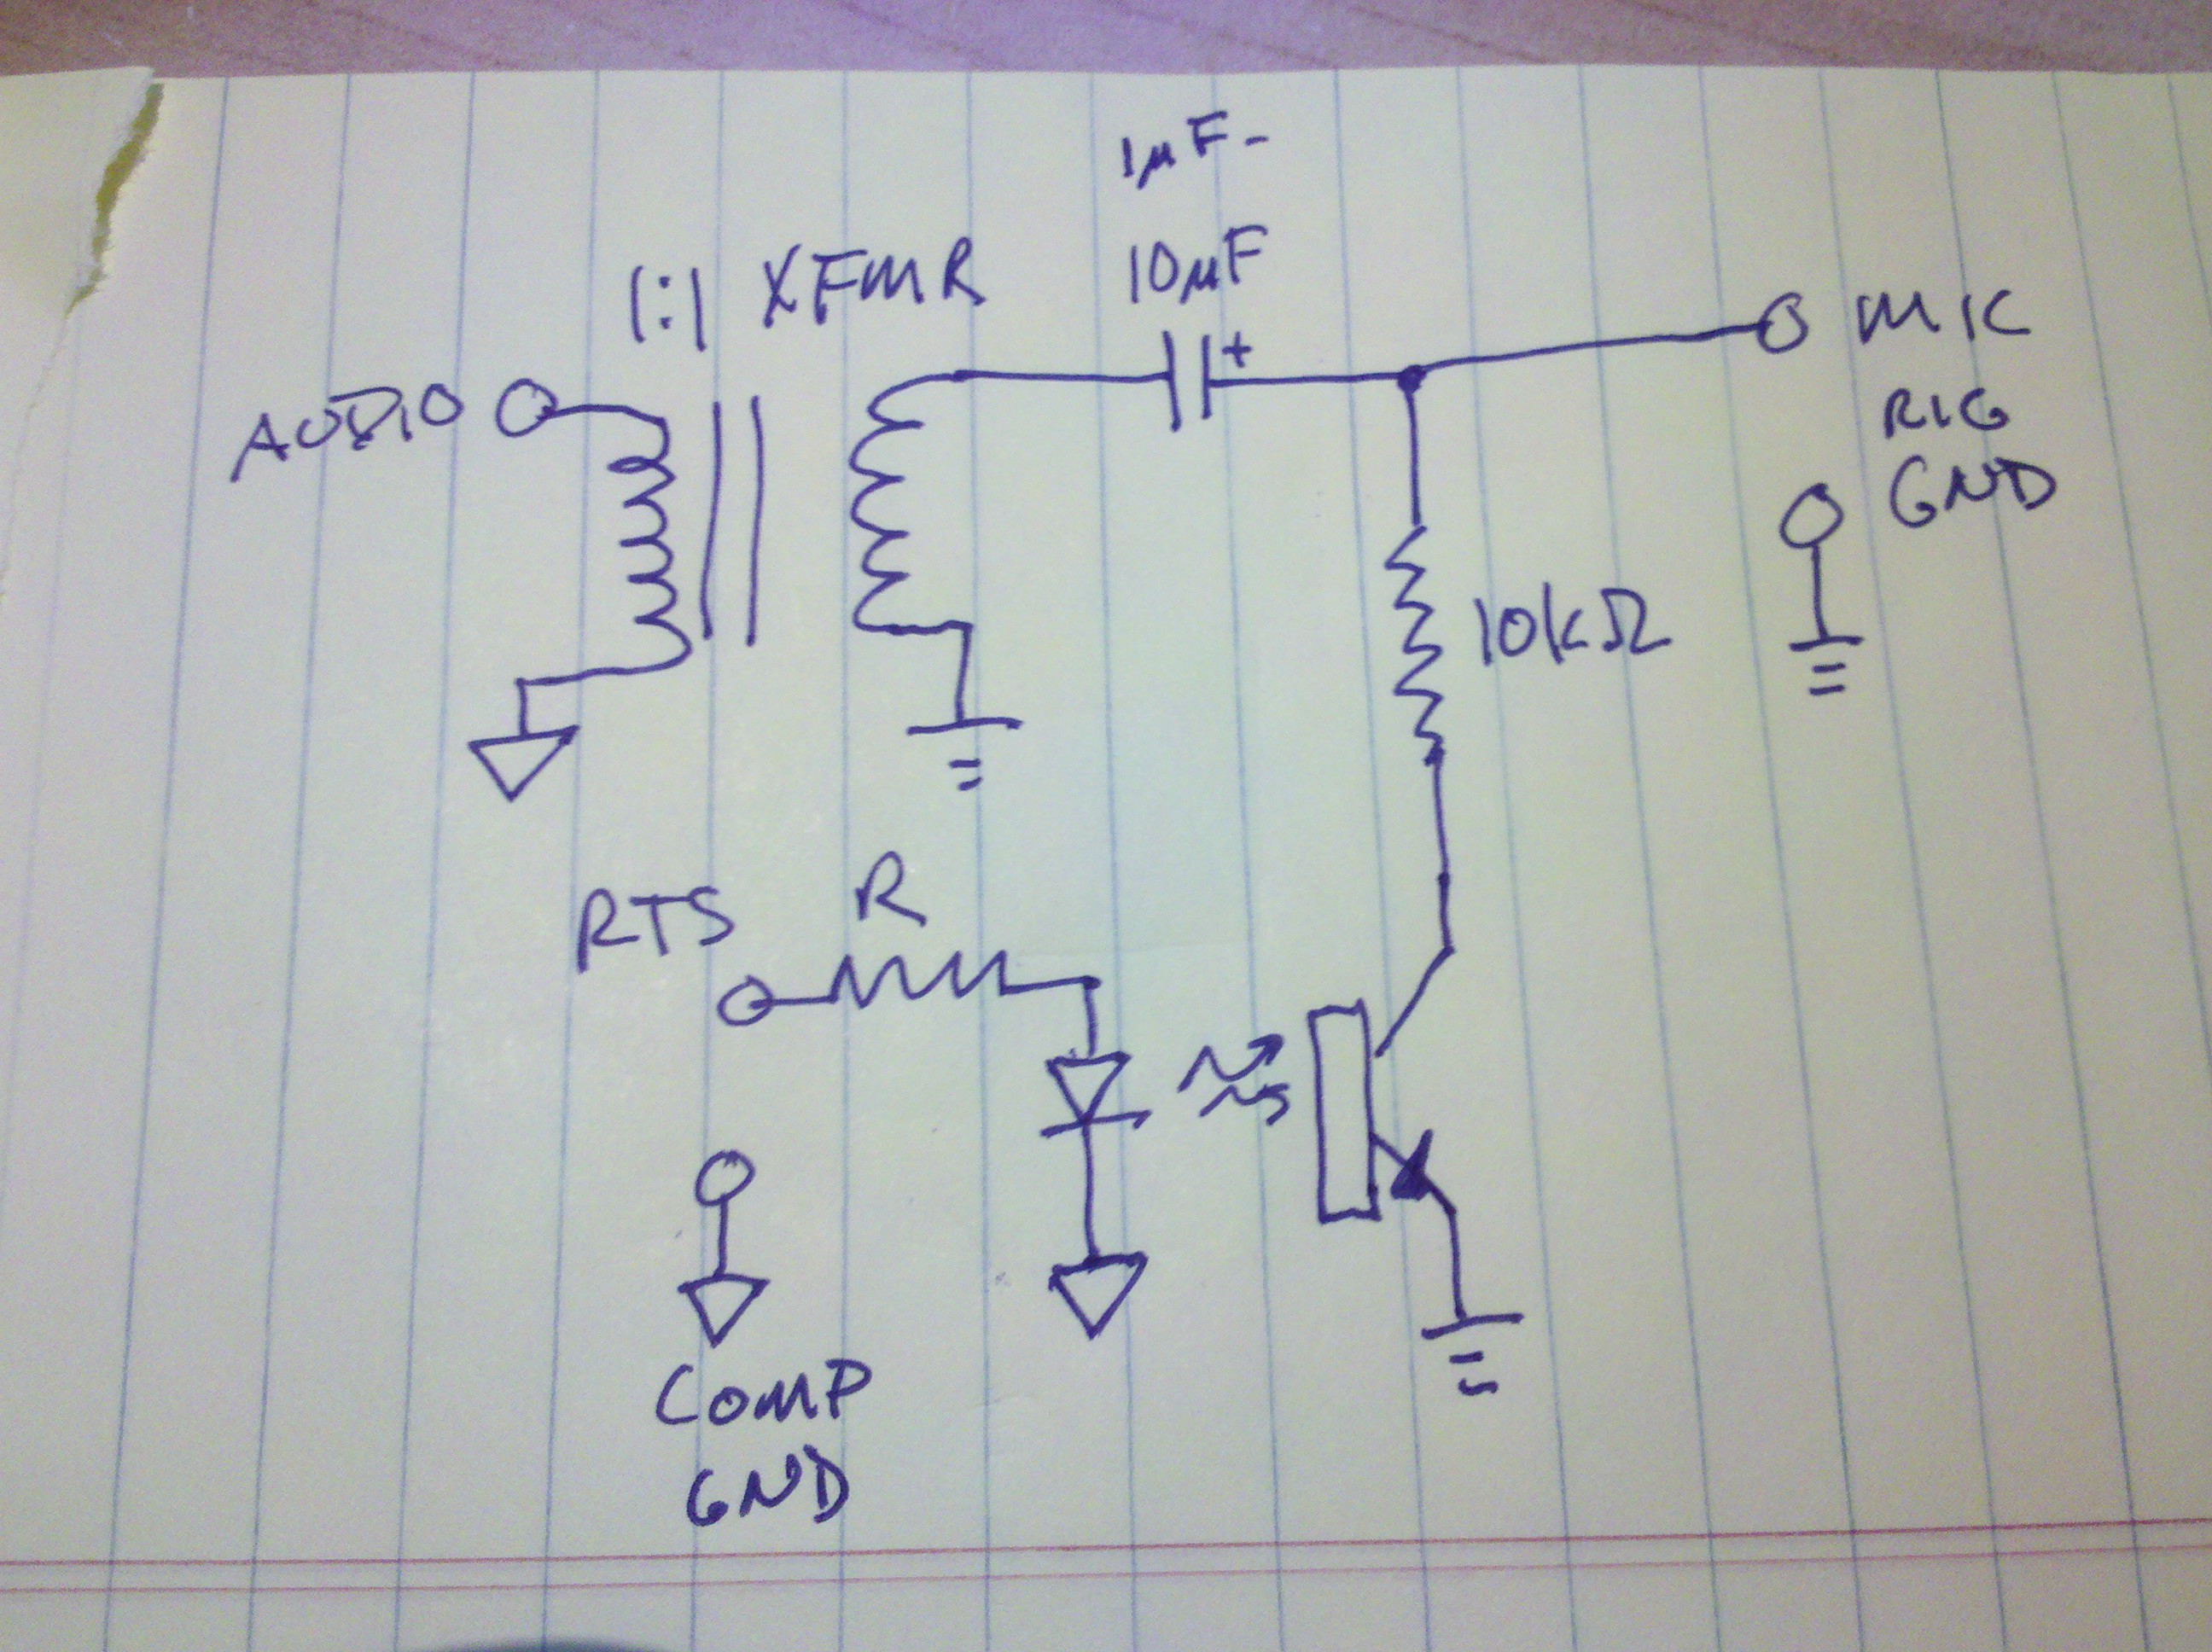 1µF-
10µF
1:1 XFMR
+
AUDIO
MIC
RIG
GND
10kΩ
RTS
R
COMP
GND